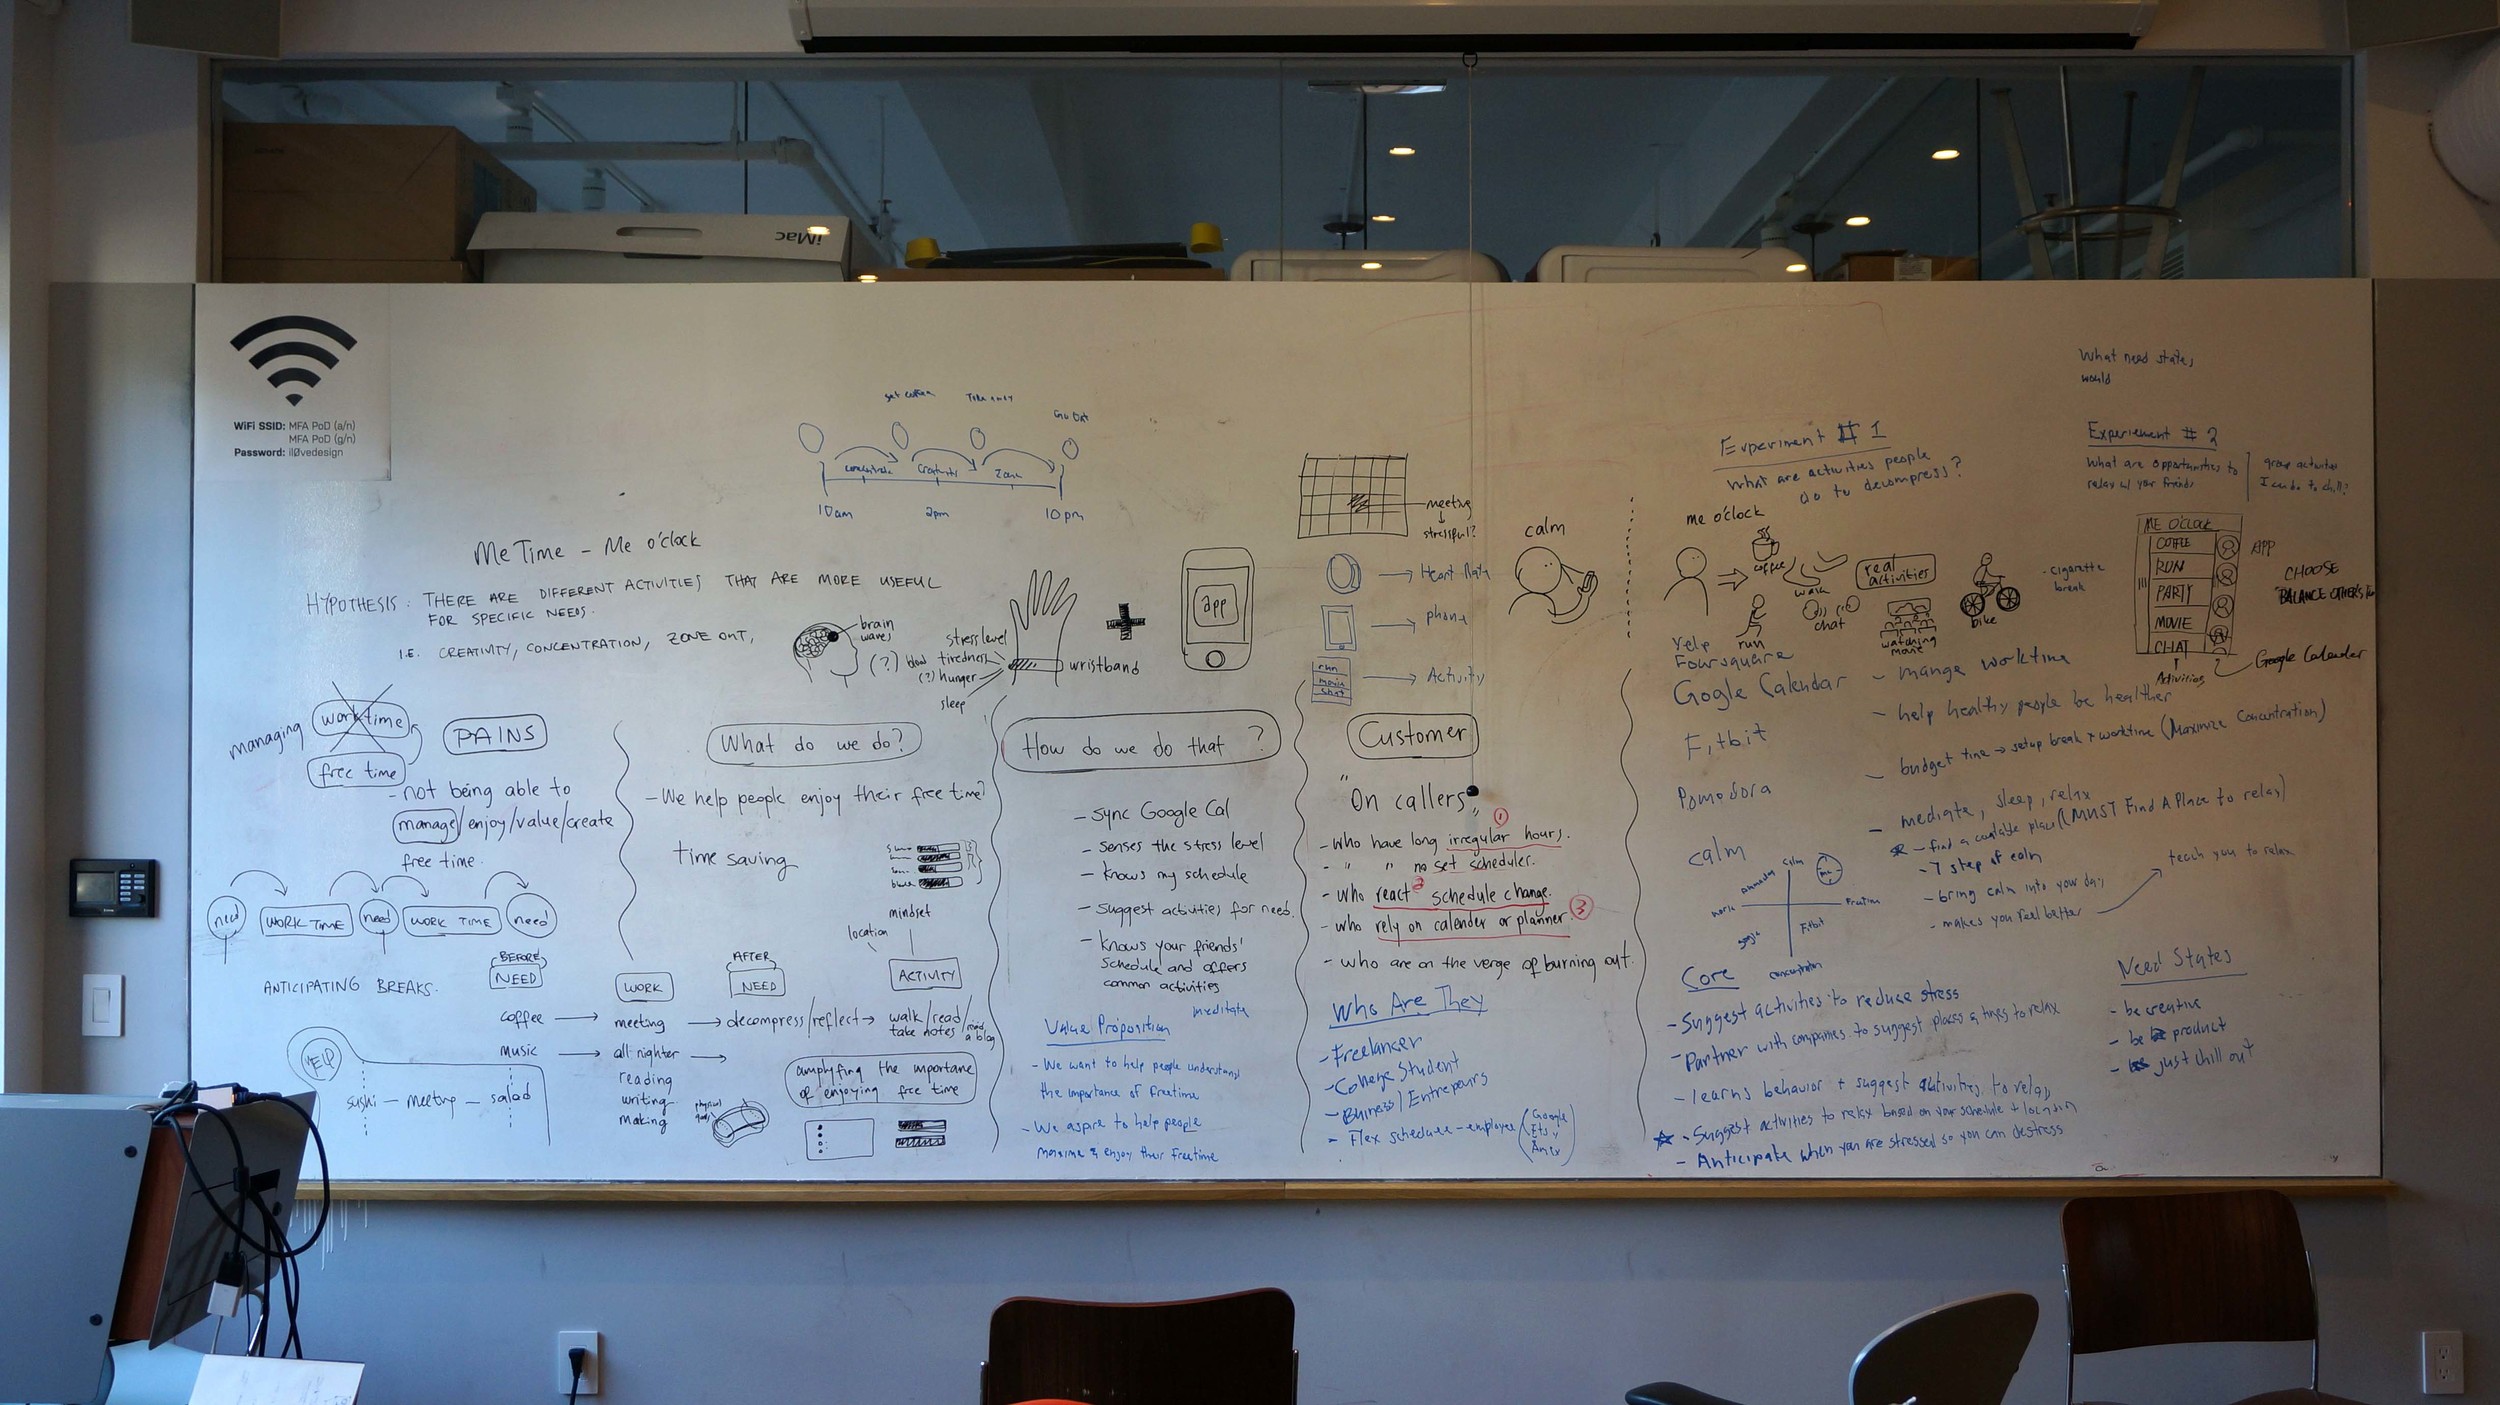 iMac
WiFi SSID: MFA PoD (a/n)
MFA PoD (g/n)
Password: ilØvedesign
get coffee
Go Out
concentrate
Creativity
Zone
10am
2pm
10pm
Me Time - Me o'clock
HYPOTHESIS: THERE ARE DIFFERENT ACTIVITIES THAT ARE MORE USEFUL
FOR SPECIFIC NEEDS.
I.E. CREATIVITY, CONCENTRATION, ZONE OUT,
brain
waves
(?)
stress level
blood tiredness
(?) hunger
sleep
wristband
app
meeting
stressful?
Heart Rate
phone
run
movie
chat
Activity
calm
managing
work time
free time
PAINS
- not being able to
manage/enjoy/value/create
free time.
need
WORK TIME
need
WORK TIME
need
ANTICIPATING BREAKS.
BEFORE
NEED
WORK
AFTER
NEED
ACTIVITY
location
mindset
coffee
meeting
decompress/reflect
walk/read/
take notes
a blog
music
all nighter
reading
writing
making
YELP
sushi - meetup - salad
amplyfing the importane
of enjoying free time
physical
What do we do?
- We help people enjoy their free time?
time saving
How do we do that ?
- sync Google Cal
- senses the stress level
- knows my schedule
- suggest activities for need.
- knows your friends'
schedule and offers
common activities
meditate
Value Proposition
- We want to help people understand
the importance of freetime
- We aspire to help people
maxime & enjoy their freetime
Customer
"On callers"
1
- who have long irregular hours.
- " " no set scheduler.
2
- who react schedule change.
- who rely on calender or planner.
3
- who are on the verge of burning out.
Who Are They
- Freelancer
- College Student
- Business/Entrepours
- Flex schedule-employee
Google
Etsy
Amex
Experiment # 1
What are activities people
do to decompress?
me o'clock
coffee
walk
real
activities
run
chat
watching
movie
bike
- cigarette
break
What need states
would
Experiement # 2
What are opportunities to
relax w/ your friends
group activities
I can do to chill?
ME O'CLOCK
COFFEE
RUN
PARTY
MOVIE
CHAT
APP
CHOOSE
BALANCE OTHER'S
Activities
Google Calender
Yelp
Foursquare
Gogle Calendar - mange worktime
Fitbit
- help healthy people be healther
Pomodora
- budget time → setup break + worktime (Maximize Concentration)
calm
- mediate, sleep, relax
- find a place (MUST Find A Place to relax)
- 7 step of calm
- bring calm into your day
- makes you feel better
teach you to relax
Calm
me
work
Freetime
google
Fitbit
concentration
Core
- Suggest activities to reduce stress
- Partner with companies to suggest places & times to relax
- learns behavior + suggest activities to relax
- Suggest activities to relax based on your schedule + location
- Anticipate when you are stressed so you can destress
Need States
- be creative
- be product
- just chill out